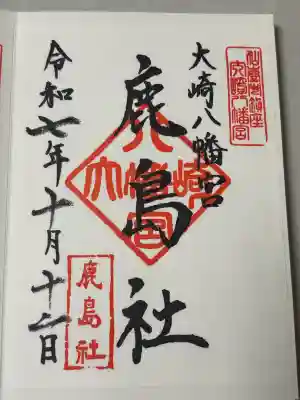 大崎八幡宮
大崎八幡宮
鹿島社
大崎八幡宮
令和七年十月十二日
鹿島社